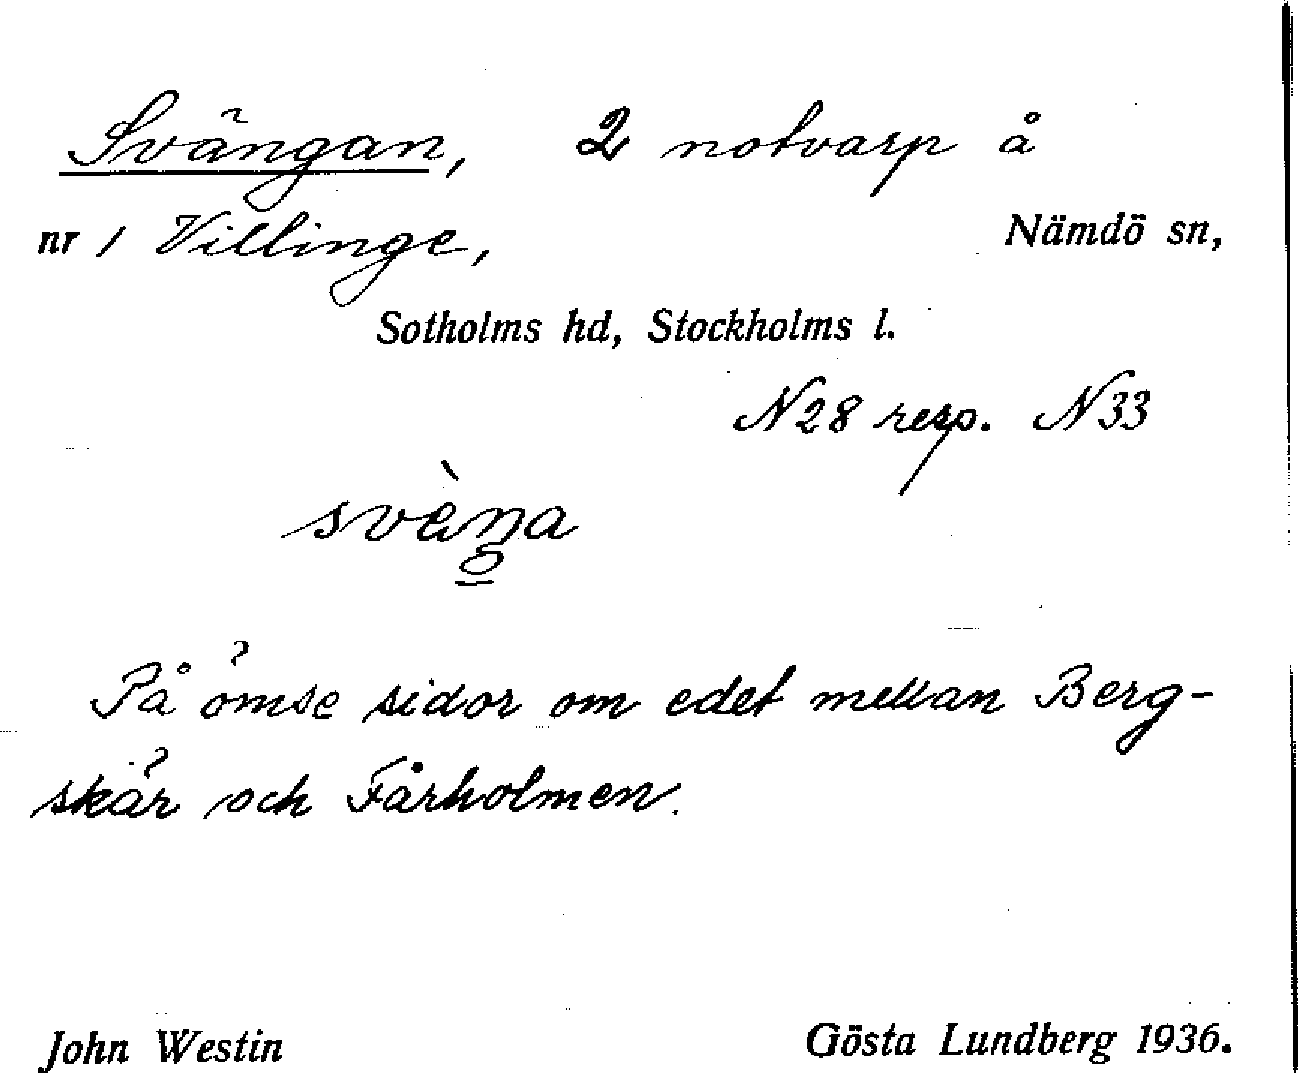 Svängan, 2 notvarp å
nr 1 Villinge, Nämdö sn,
Sotholms hd, Stockholms l.
N28 resp. N33
På ömse sidor om edet mellan Berg-
skär och Fårholmen.
John Westin Gösta Lundberg 1936.